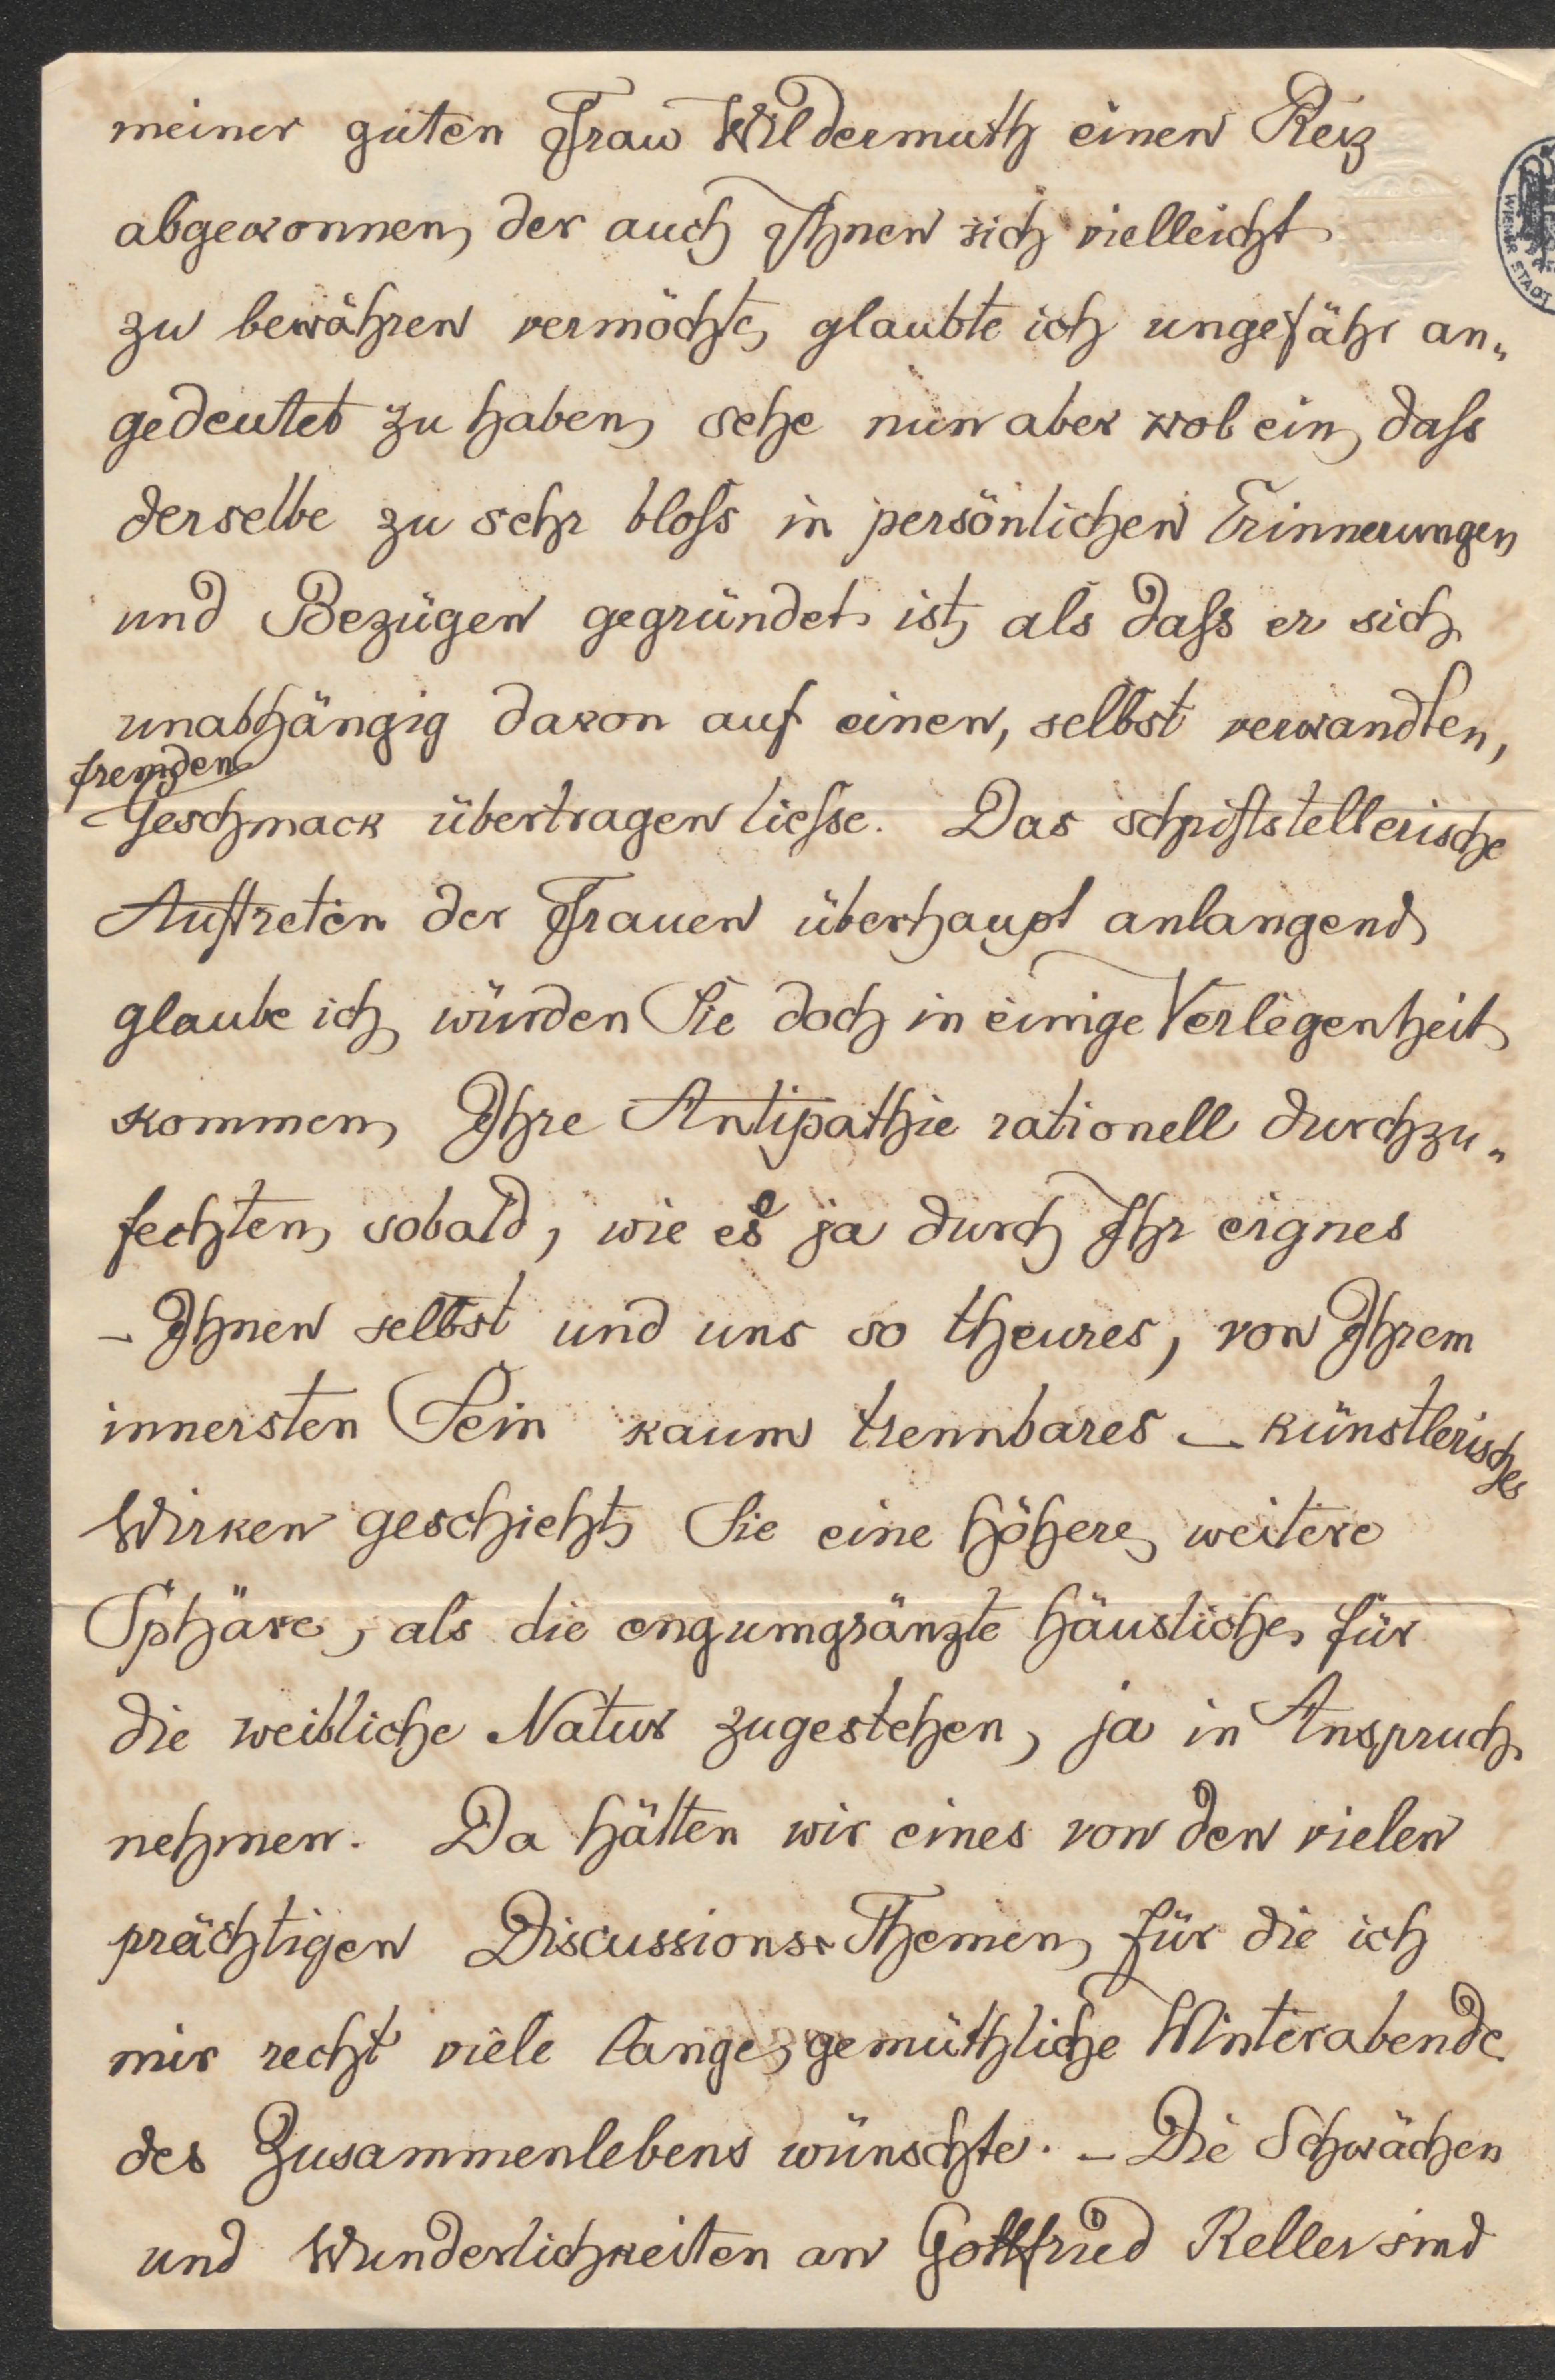 meiner guten Frau Wildermuth einen Reiz
abgewonnen, der auch Ihnen sich vielleicht
zu bewähren vermöchte, glaubte ich ungefähr an„
gedeutet zu haben, sehe nun aber wol ein, dass
derselbe zu sehr bloss in persönlichen Erinnerungen
und Bezügen gegründet ist, als dass er sich
unabhängig davon auf einen, selbst verwandten,
fremden
Geschmack übertragen liesse. Das schriftstellerische
Auftreten der Frauen überhaupt anlangend,
glaube ich, würden Sie doch in einige Verlegenheit
kommen, Ihre Antipathie rationell durchzu„
fechten, sobald, wie es ja durch Ihr eignes
– Ihnen selbst und uns so theures, von Ihrem
innersten Sein kaum trennbares – künstlerisches
Wirken geschieht, Sie eine höhere, weitere
Sphäre, als die engumgränzte häusliche, für
die weibliche Natur zugestehen, ja in Anspruch
nehmen. Da hätten wir eines von den vielen
prächtigen Discussions-Themen, für die ich
mir recht viele lange, gemüthliche Winterabende
des Zusammenlebens wünschte. – Die Schwächen
und Wunderlichkeiten an Gottfried Keller sind
WIENER STADT